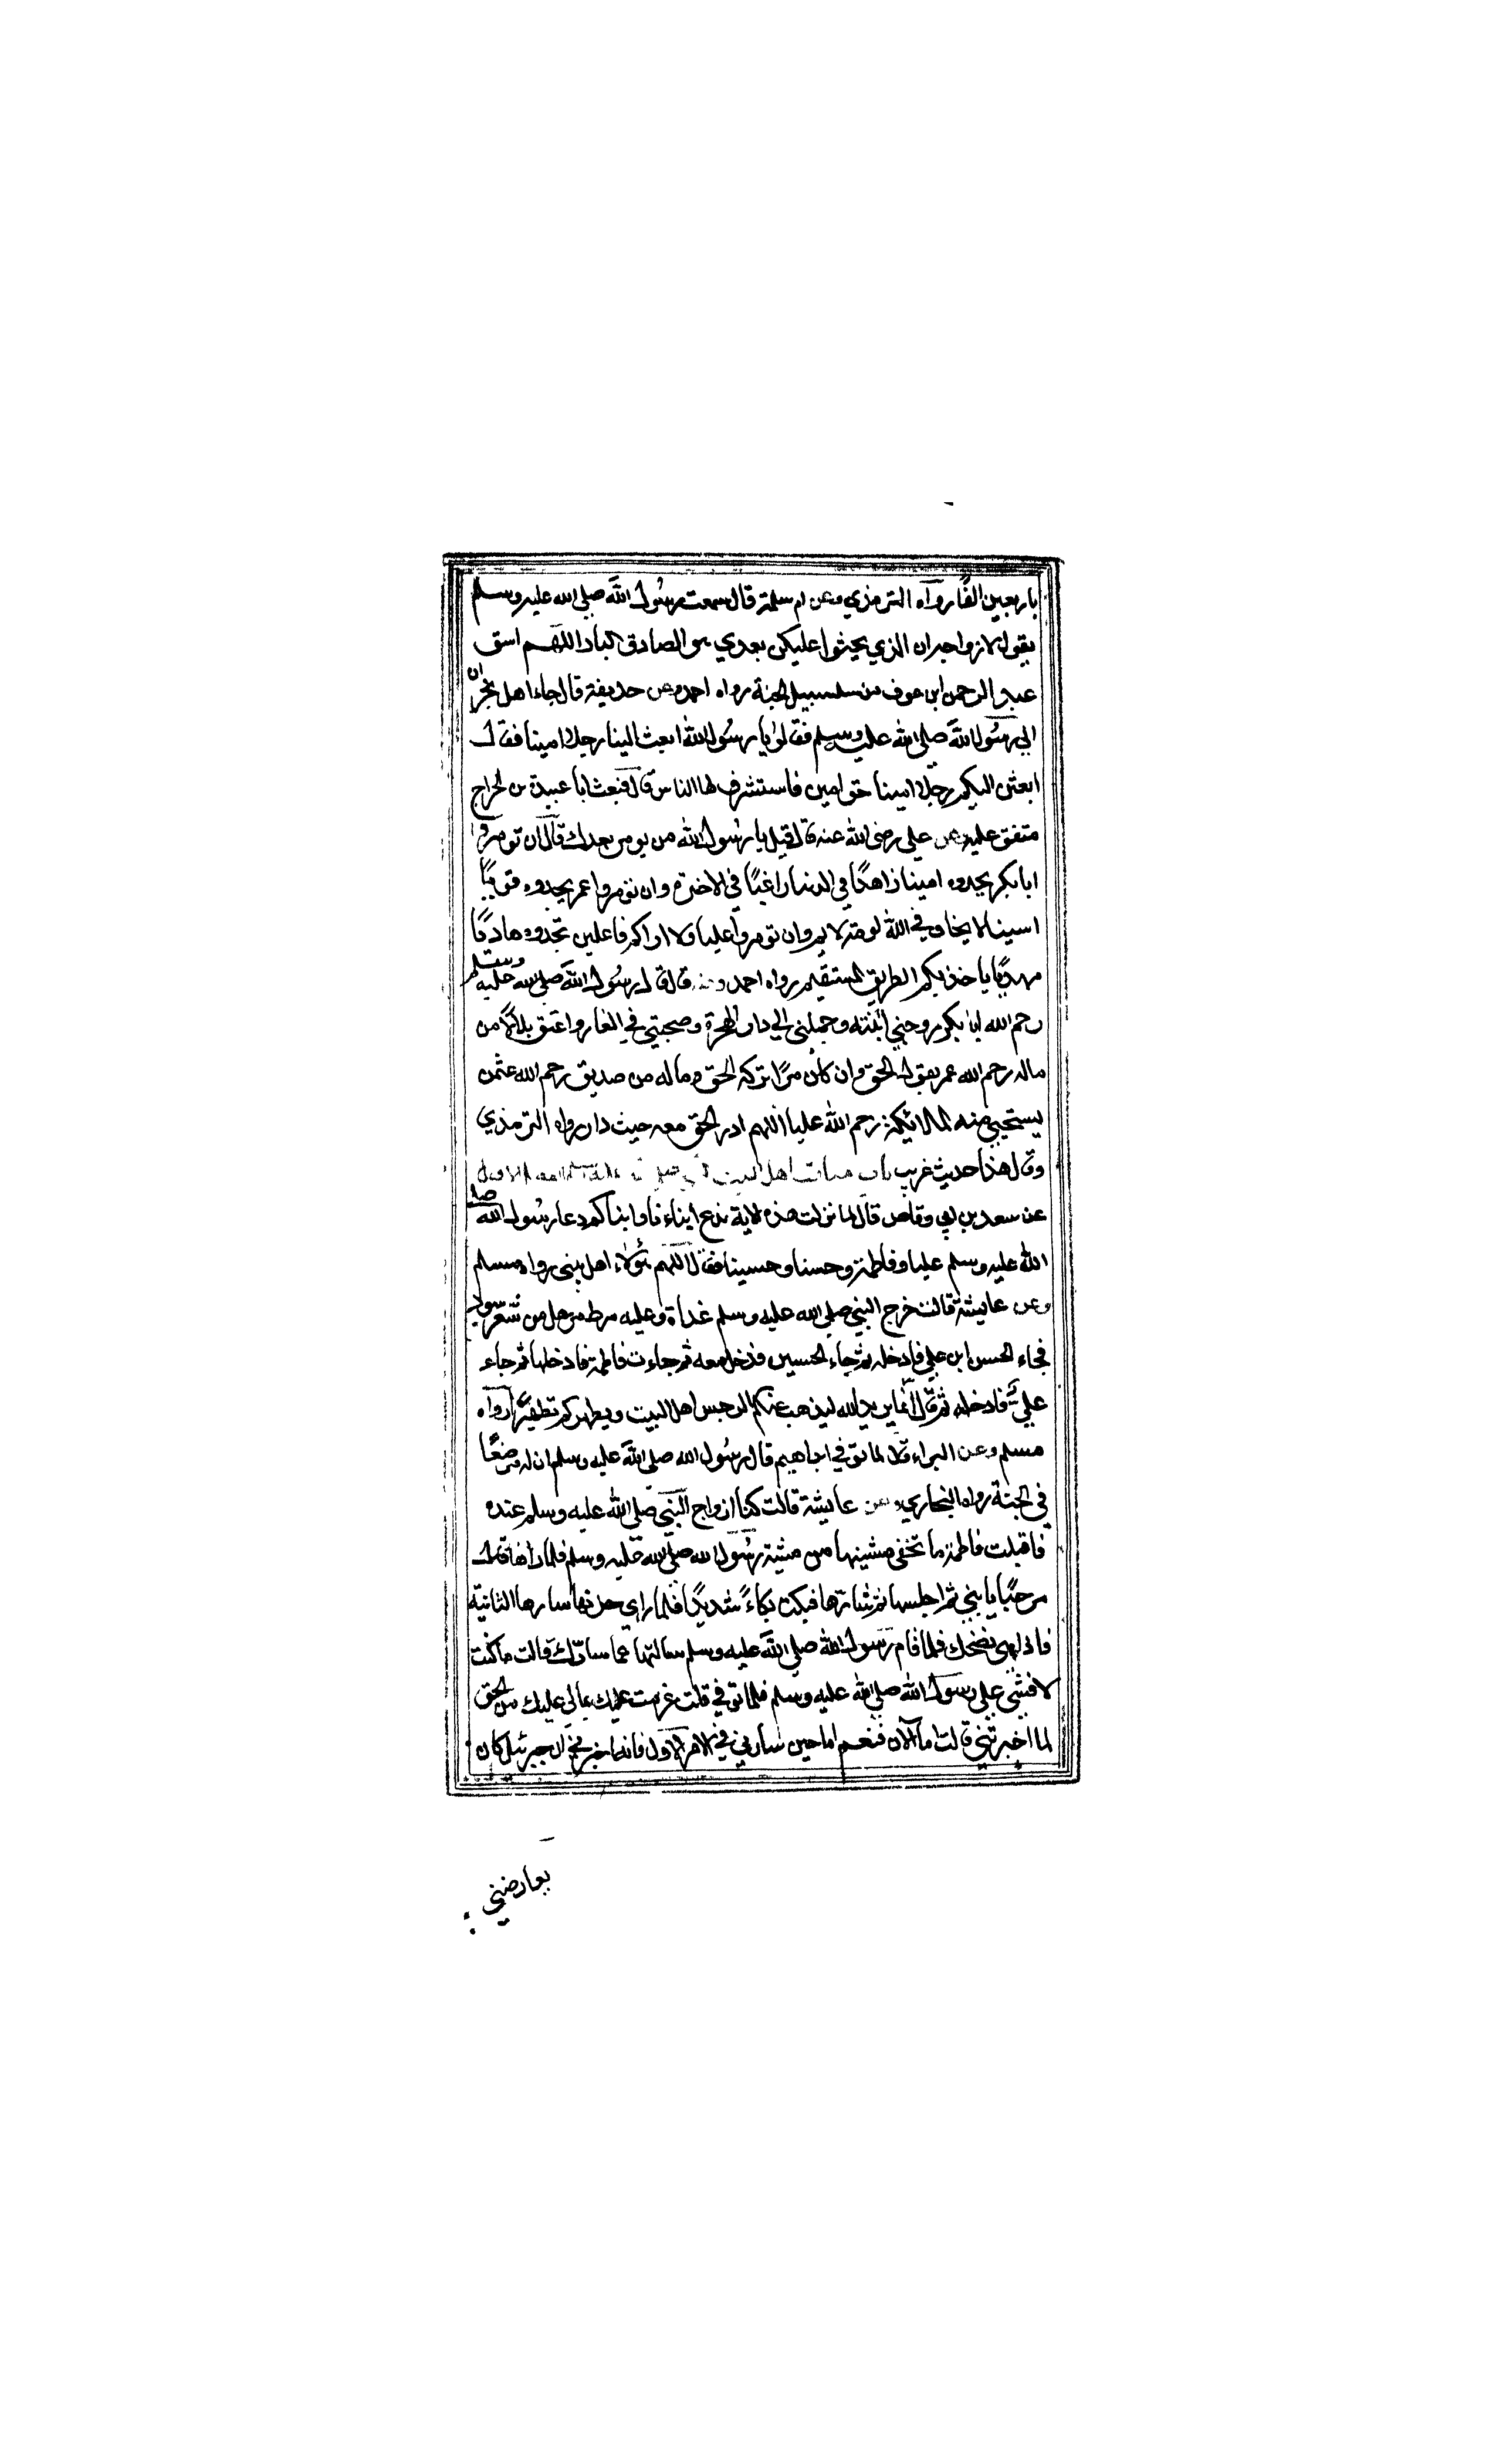 باربعين الفًا رواه الترمذي وعن ام سلمة قال سمعت رسول الله صلي الله عليه وسلم
يقول لازواجه ان الذي يحيثوا عليكن بعدي هو الصادق البار اللهم اسق
عبد الرحمن ابن عوف من سلسبيل الجنة رواه احمد وعن حذيفة قال جاء اهل نجران
الي رسول الله صلي الله عليه وسلم فقالوا يا رسول الله ابعث الينا رجلا امينا فقال
ابعثن اليكم رجلا امينا حق امين فاستشرف لها الناس قال فبعث ابا عبيدة بن الجراح
متفق عليه وعن علي رضي الله عنه قال قيل يا رسول الله من يومر بعدك قال ان تومروا
ابا بكر يجدوه امينا زاهدًا في الدنيا راغبًا في الاخرة وان تومروا عمر يجدوه قويًا
امينا لا يخاف في الله لومة لايم وان تومروا عليا ولا اراكم فاعلين تجدوه هاديًا
مهديًا ياخذ بكم الطريق المستقيم رواه احمد وعنه قال قال رسول الله صلي الله عليه وسلم
رحم الله ابا بكر زوجني ابنته وحملني الي دار الهجرة وصحبني في الغار واعتق بلالًا من
ماله رحم الله عمر يقول الحق وان كان مرًا تركه الحق وماله من صديق رحم الله عثمن
يستحيي منه الملائكة رحم الله عليا اللهم ادر الحق معه حيث دار رواه الترمذي
وقال هذا حديث غريب باب مناقب اهل البيت النبي صلي الله الاول
عن سعد بن ابي وقاص قال لما نزلت هذه الاية ندع ابناءنا وابناكم دعا رسول الله صلي
الله عليه وسلم عليا وفاطمة وحسنا وحسينا فقال اللهم هؤلاء اهل بيتي رواه مسلم
وعن عايشة قالت خرج النبي صلي الله عليه وسلم غداة وعليه مرط مرحل من شعر اسود
فجاء الحسن ابن علي فادخله ثم جاء الحسين فدخل معه ثم جاءت فاطمة فادخلها ثم جاء
علي فادخله ثم قال انما يريد الله ليذهب عنكم الرجس اهل البيت ويطهركم تطهيرًا رواه
مسلم وعن البراء قال لما توفي ابراهيم قال رسول الله صلي الله عليه وسلم ان له مرضعًا
في الجنة رواه البخاري وعن عايشة قالت كنا ازواج النبي صلي الله عليه وسلم عنده
فاقبلت فاطمة ما تخفي مشيتها من مشية رسول الله صلي الله عليه وسلم فلما راها قال
مرحبًا يا بنتي ثم اجلسها ثم سارها فبكت بكاءً شديدًا فلما راي حزنها سارها الثانية
فاذا هي تضحك فلما قام رسول الله صلي الله عليه وسلم سالتها عما سارك قالت ما كنت
لافشي علي رسول الله صلي الله عليه وسلم فلما توفي قلت عزمت عليك بما لي عليك من الحق
لما اخبرتني قالت اما الان فنعم اما حين سارني في الامر الاول فانه اخبرني ان جبرئيل كان
يعارضني